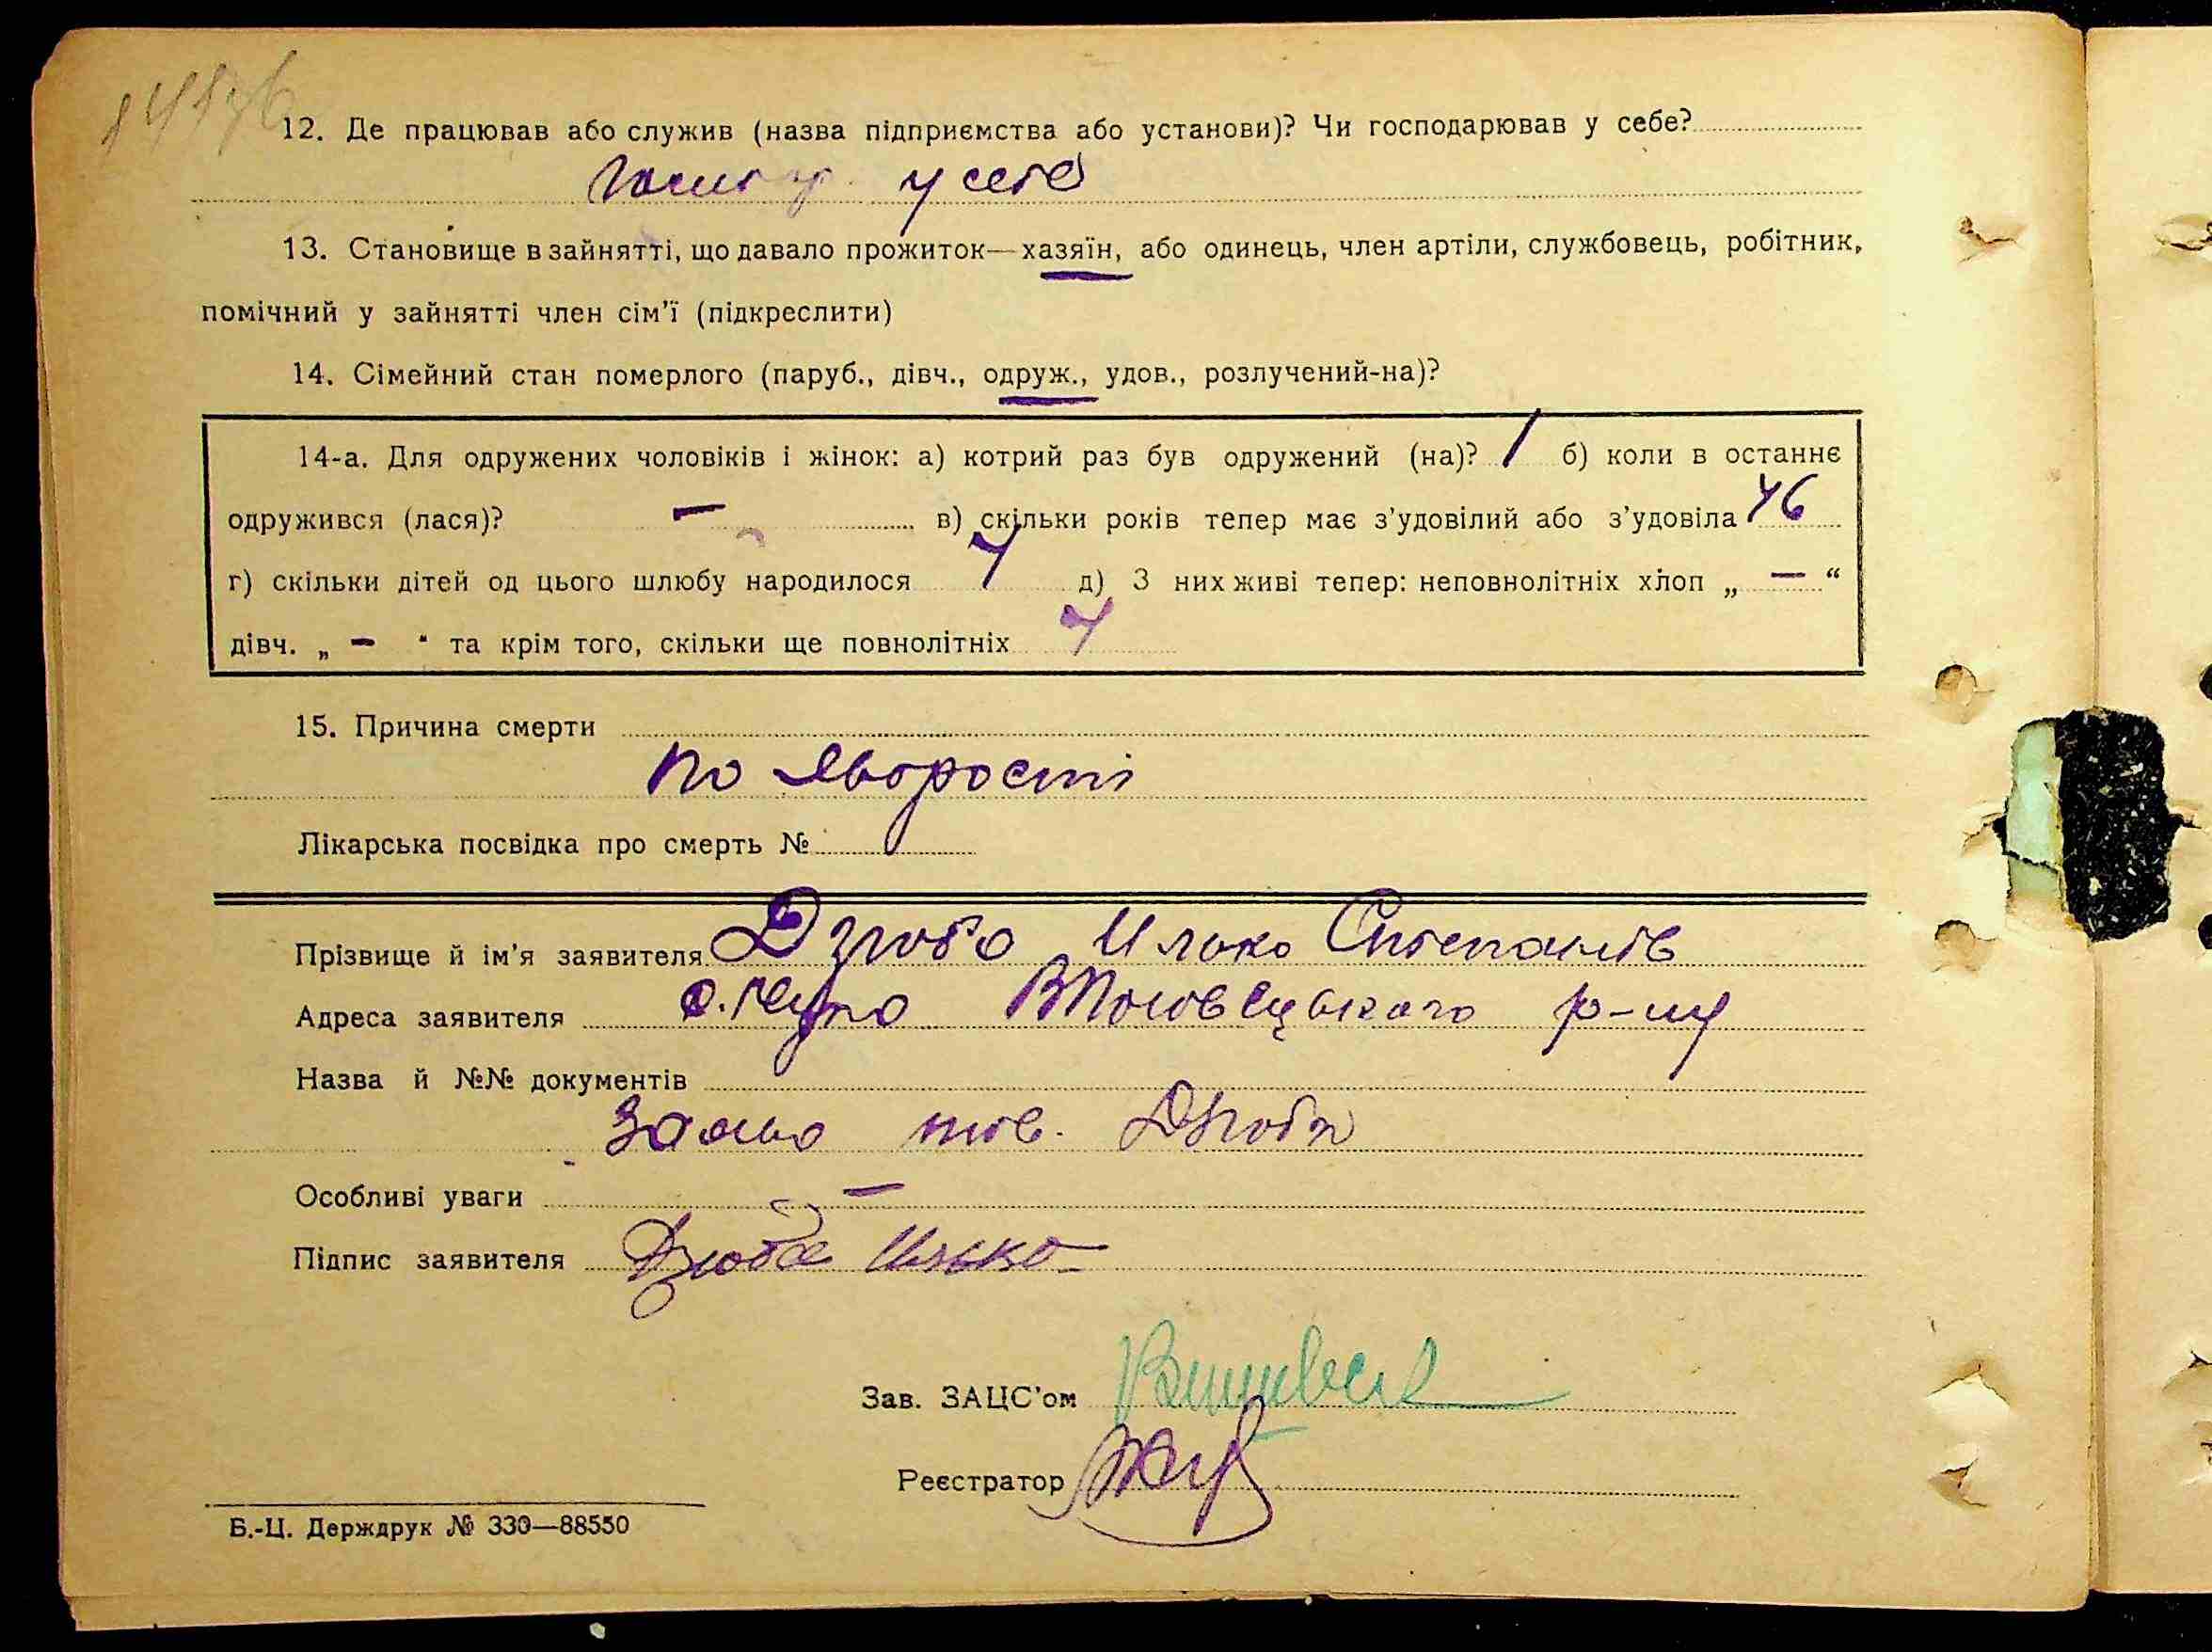 12. Де працював або служив (назва підприємства або установи)? Чи господарював у себе?
у себе
13. Становище в зайнятті, що давало прожиток—хазяїн, або одинець, член артіли, службовець, робітник,
помічний у зайнятті член сім'ї (підкреслити)
14. Сімейний стан померлого (паруб., дівч., одруж., удов., розлучений-на)?
14-а. Для одружених чоловіків і жінок: а) котрий раз був одружений (на)? 1 б) коли в останнє
одружився (лася)? — в) скільки років тепер має з'удовілий або з'удовіла 46
г) скільки дітей од цього шлюбу народилося 4 д) З них живі тепер: неповнолітніх хлоп „ — “
дівч. „ — “ та крім того, скільки ще повнолітніх 4
15. Причина смерти
по хворості
Лікарська посвідка про смерть №
Прізвище й ім'я заявителя Дзюба Илько Степанів
Адреса заявителя р-ну
Назва й №№ документів
тов. Дзюби
Особливі уваги —
Підпис заявителя Дзюба Илько
Зав. ЗАЦС'ом
Реєстратор
Б.-Ц. Держдрук № 330—88550